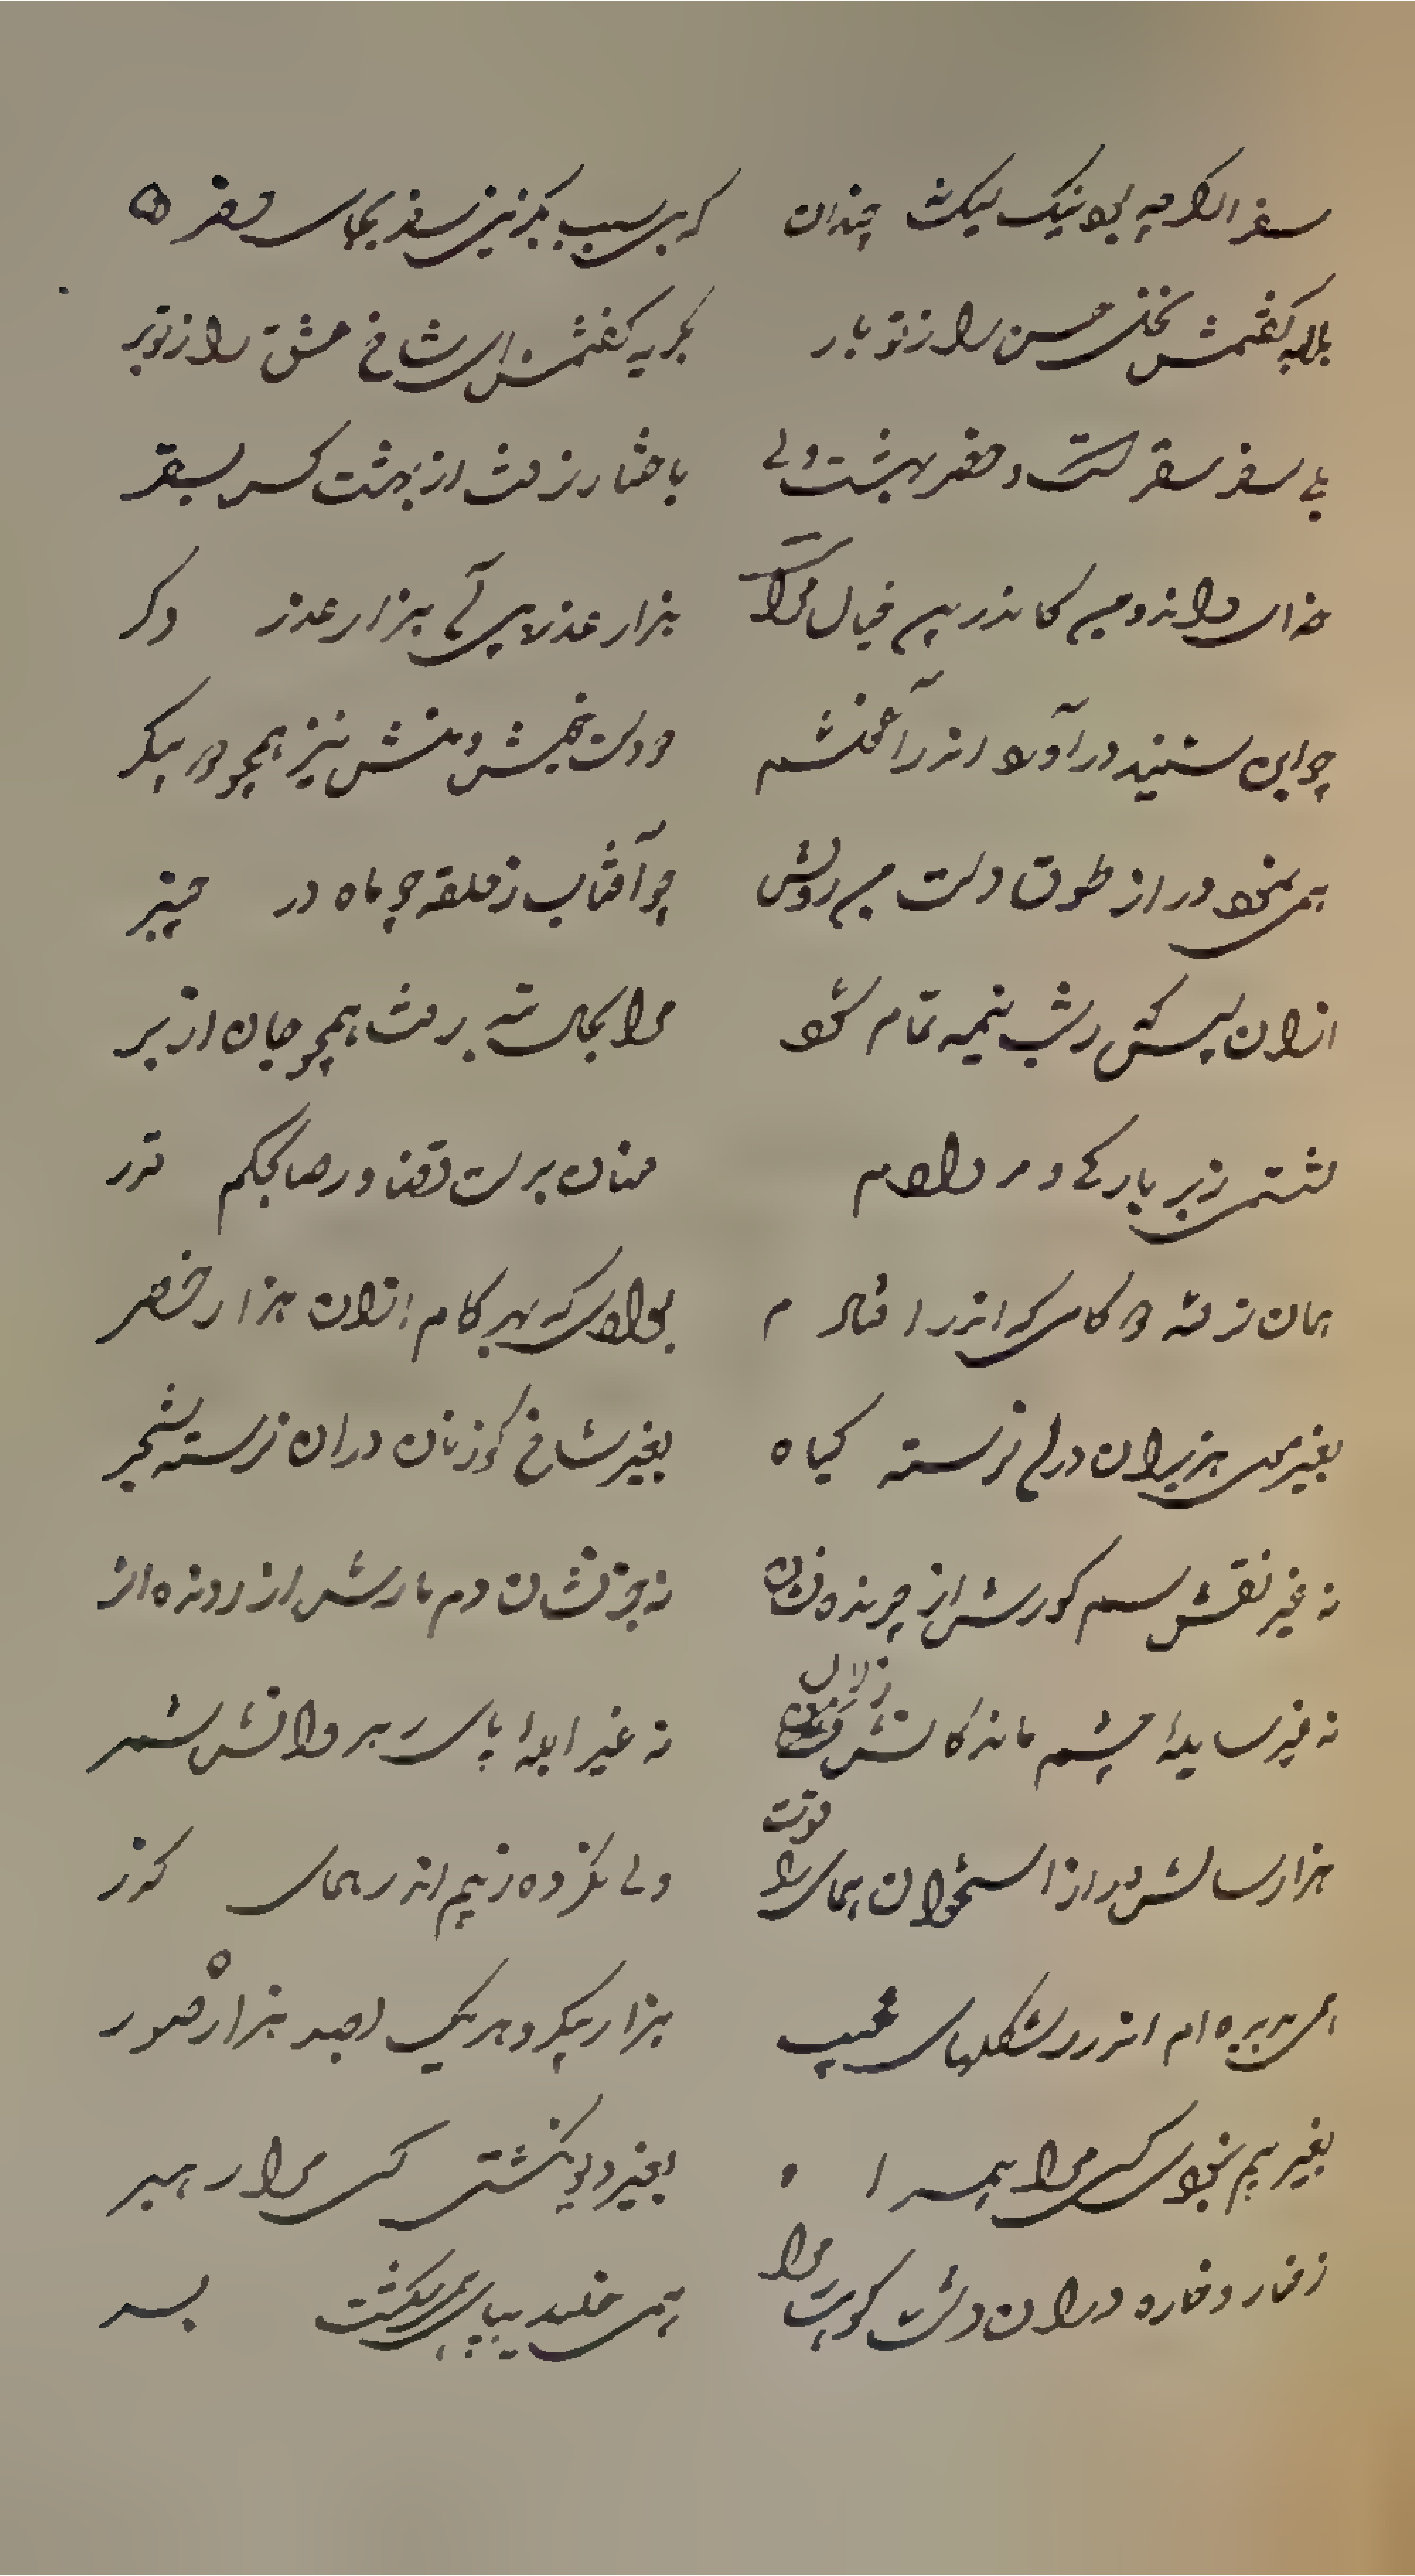 سفر اگرچه بود نیک لیکن چندان که بی سبب نگزینی سفر بجای حضر
بلابه گفتمش نخل حسن را از تو بار بگریه گفتمش ای شاخ عشق را از تو بر
بلی سفر سقر است و حضر بهشت ولی باختیار نرفت از بهشت کس بسقر
خدای داند و من کاندرین خیال مرا هزار عذر پس آن هزار عذر دگر
چو این شنید درآورد اندر آغوشم دو دست خویش و منش نیز همچو دو پیکر
همی نمود در از طوق دست من رویش چو آفتاب ز حلقه چو ماه در چنبر
ازان سپس که شب نیمه تمام نمود مرا بجای تنه برفت همچو جان از بر
نشستم زبر بارکی و سر دادم عنان بدست قضا و رضا بحکم قدر
همان نرفته دو گامی که اندر افتادم بوادی که بهر گام ازان هزار خطر
بغیر موی هزبران درو نرسته گیاه بغیر شاخ گوزنان دران نرسته شجر
نه غیر نقش سم گورش از چرنده نشان نه جز نشان دم مارش از رونده اثر
نه غیر سایه چشم مانده کانش زلال نه غیر آبله پای رهروانش شمر
هزار سالش در از استخوان همای را قوت ولی نکرده ز بیم اندر همای گذر
همی بدیدم اندر رو شکلهای عجیب هزار پیکر و هر یک بصد هزار صور
بغیر بیم نبودی کسی مرا همراه بغیر دیو نگشتی کسی مرا رهبر
ز خار و خاره دران دشت کوه مرا همی خلید بپای و همی شکست بسر